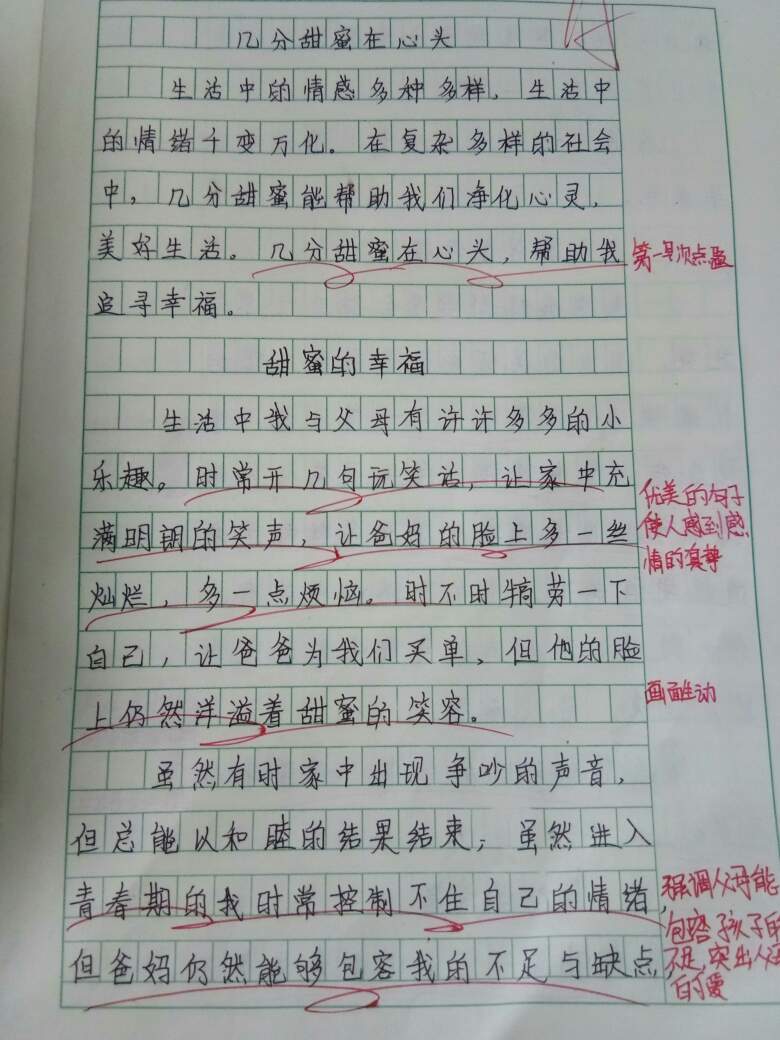 几分甜蜜在心头
生活中的情感多种多样，生活中
的情绪千变万化。在复杂多样的社会
中，几分甜蜜能帮助我们净化心灵，
美好生活。几分甜蜜在心头，帮助我
追寻幸福。
第一次点题
甜蜜的幸福
生活中我与父母有许许多多的小
乐趣。时常开几句玩笑话，让家中充
满明朗的笑声，让爸妈的脸上多一丝
灿烂，多一点烦恼。时不时犒劳一下
自己，让爸爸为我们买单，但他的脸
上仍然洋溢着甜蜜的笑容。
优美的句子
使人感到感
情的真挚
画面生动
虽然有时家中出现争吵的声音，
但总能以和睦的结果结束；虽然进入
青春期的我时常控制不住自己的情绪，
但爸妈仍然能够包容我的不足与缺点
强调父母能
包容孩子的
不足，突出父母
的爱